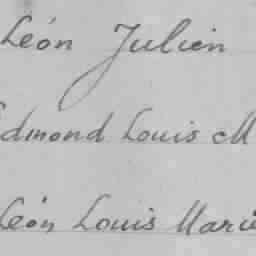 Léon Julien
Edmond Louis M
Léon Louis Marie